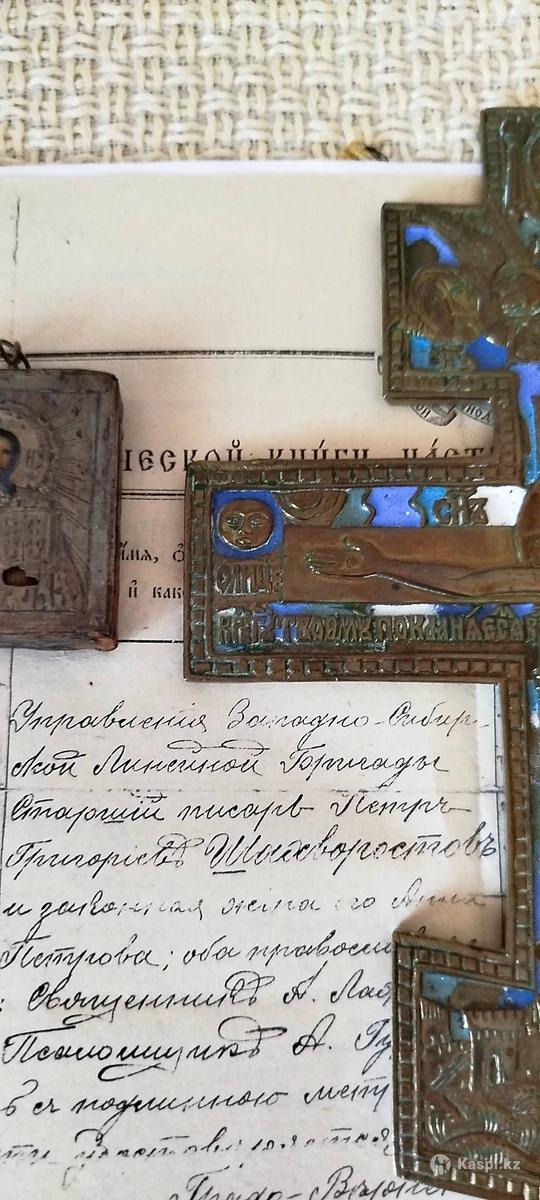 ІЕСКОЙ КНИ́ГИ ЧА́СТ
и҆́мя, ѻ҆
и҆ как
СН҃Ъ
СОЛНЦЕ
КРЕСТУ ТВОЕМУ ПОКЛАНАЕ
Управленія Западно-Сибир-
ской Линейной Бригады
Старшій писарь Петръ
Григоріевъ Шахворостовъ
и законная жена его Анна
Петрова; оба православ
Священникъ А. Лав
Псаломщикъ А. Гу
ъ съ подлинною метр
Kaspi.kz